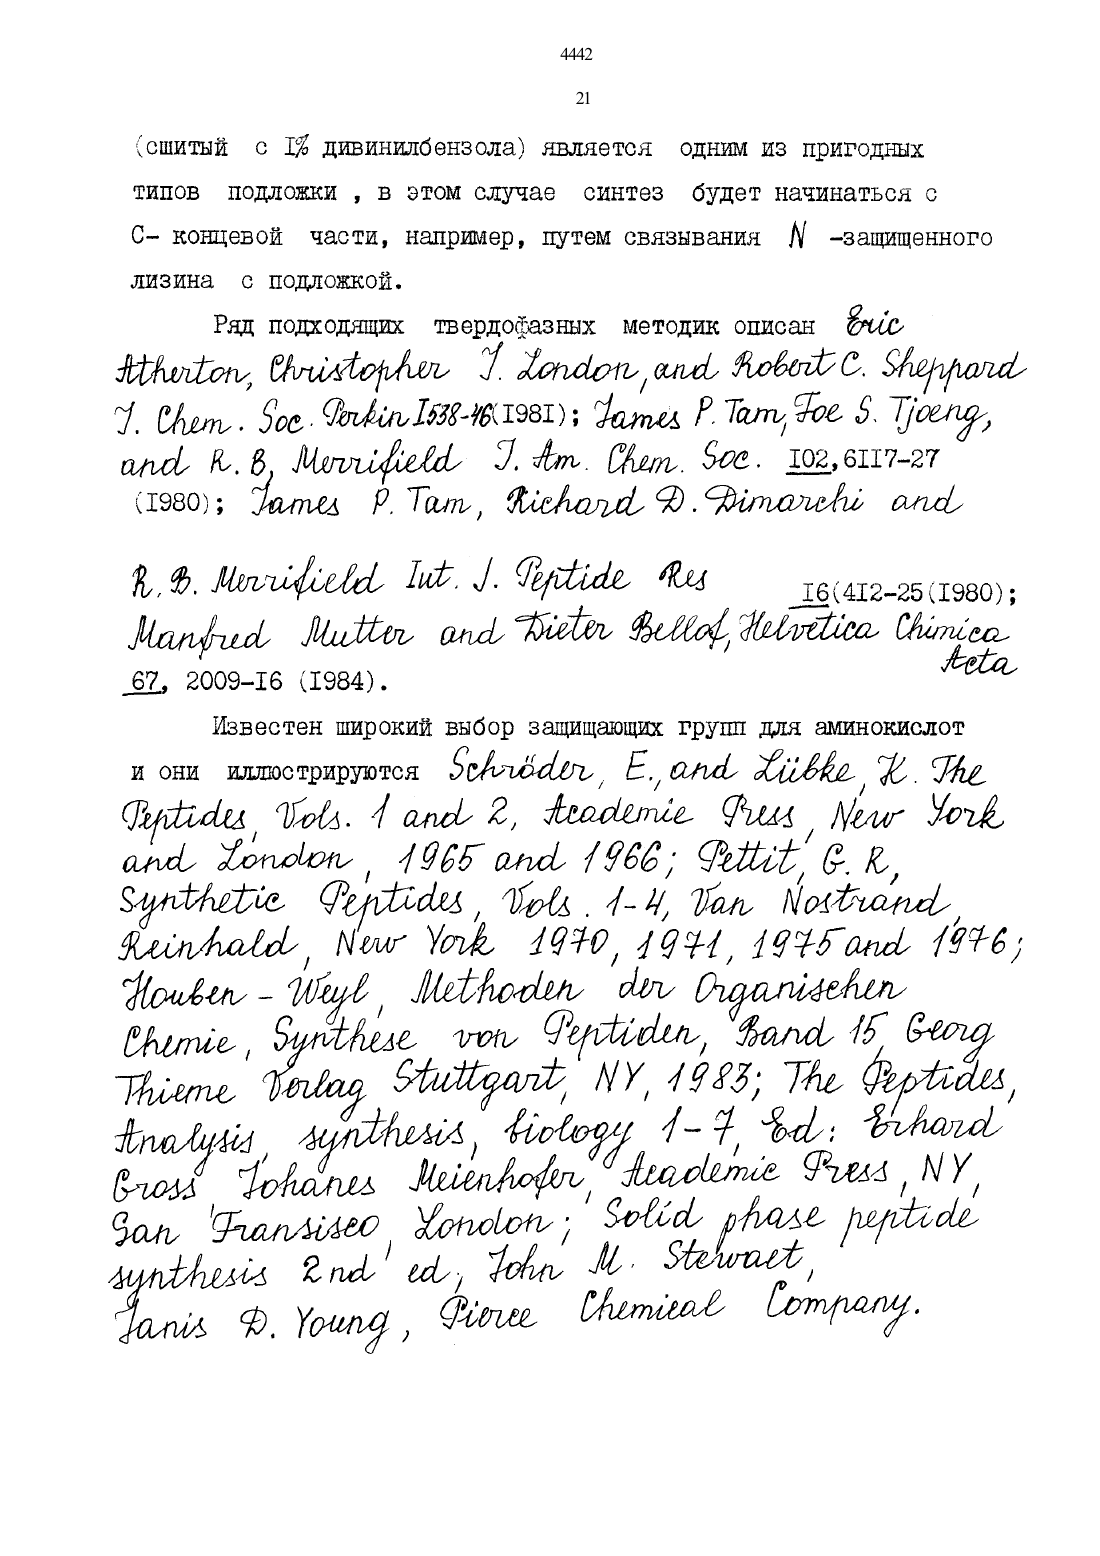 4442
21
(сшитый с 1% дивинилбензола) является одним из пригодных
типов подложки , в этом случае синтез будет начинаться с
С- концевой части, например, путем связывания N -защищенного
лизина с подложкой.
Ряд подходящих твердофазных методик описан Eric
Atherton, Christopher J. London, and Robert C. Sheppard
J. Chem. Soc. Perkin I 538-46(1981); James P. Tam, Foe S. Tjoeng,
and R. B. Merrifield J. Am. Chem. Soc. 102, 6117-27
(1980); James P. Tam, Richard D. Dimarchi and
R. B. Merrifield Int. J. Peptide Res 16(412-25(1980);
Manfred Mutter and Dieter Bellof, Helvetica Chimica
Acta
67, 2009-16 (1984).
Известен широкий выбор защищающих групп для аминокислот
и они иллюстрируются Schröder, E., and Lübke, K. The
Peptides, Vols. 1 and 2, Academic Press, New York
and London, 1965 and 1966; Pettit, G. R,
Synthetic Peptides, Vols. 1-4, Van Nostrand,
Reinhald, New York 1970, 1971, 1975 and 1976;
Houben - Weyl, Methoden der Organischen
Chemie, Synthese von Peptiden, Band 15, Georg
Thieme Verlag Stuttgart, NY, 1983; The Peptides,
Analysis, synthesis, biology 1-7, Ed: Erhard
Gross, Johanes Meienhofer, Academic Press, NY,
San Fransisco, London; Solid phase peptide
synthesis 2nd ed, John M. Stewaet,
Janis D. Young, Pierce Chemical Company.